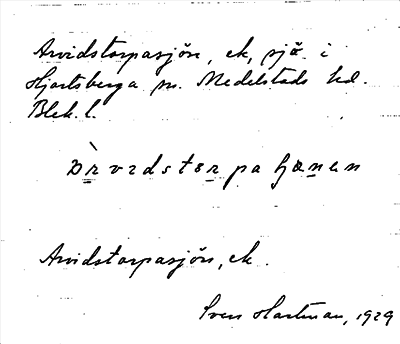 Arvidstorpasjön, ek, sjö i
Hjortsberga sn. Medelstads hd.
Blek. l.
àrvɪdstərpaʃənən
Arvidstorpasjön, ek.
Sven Hartman, 1929